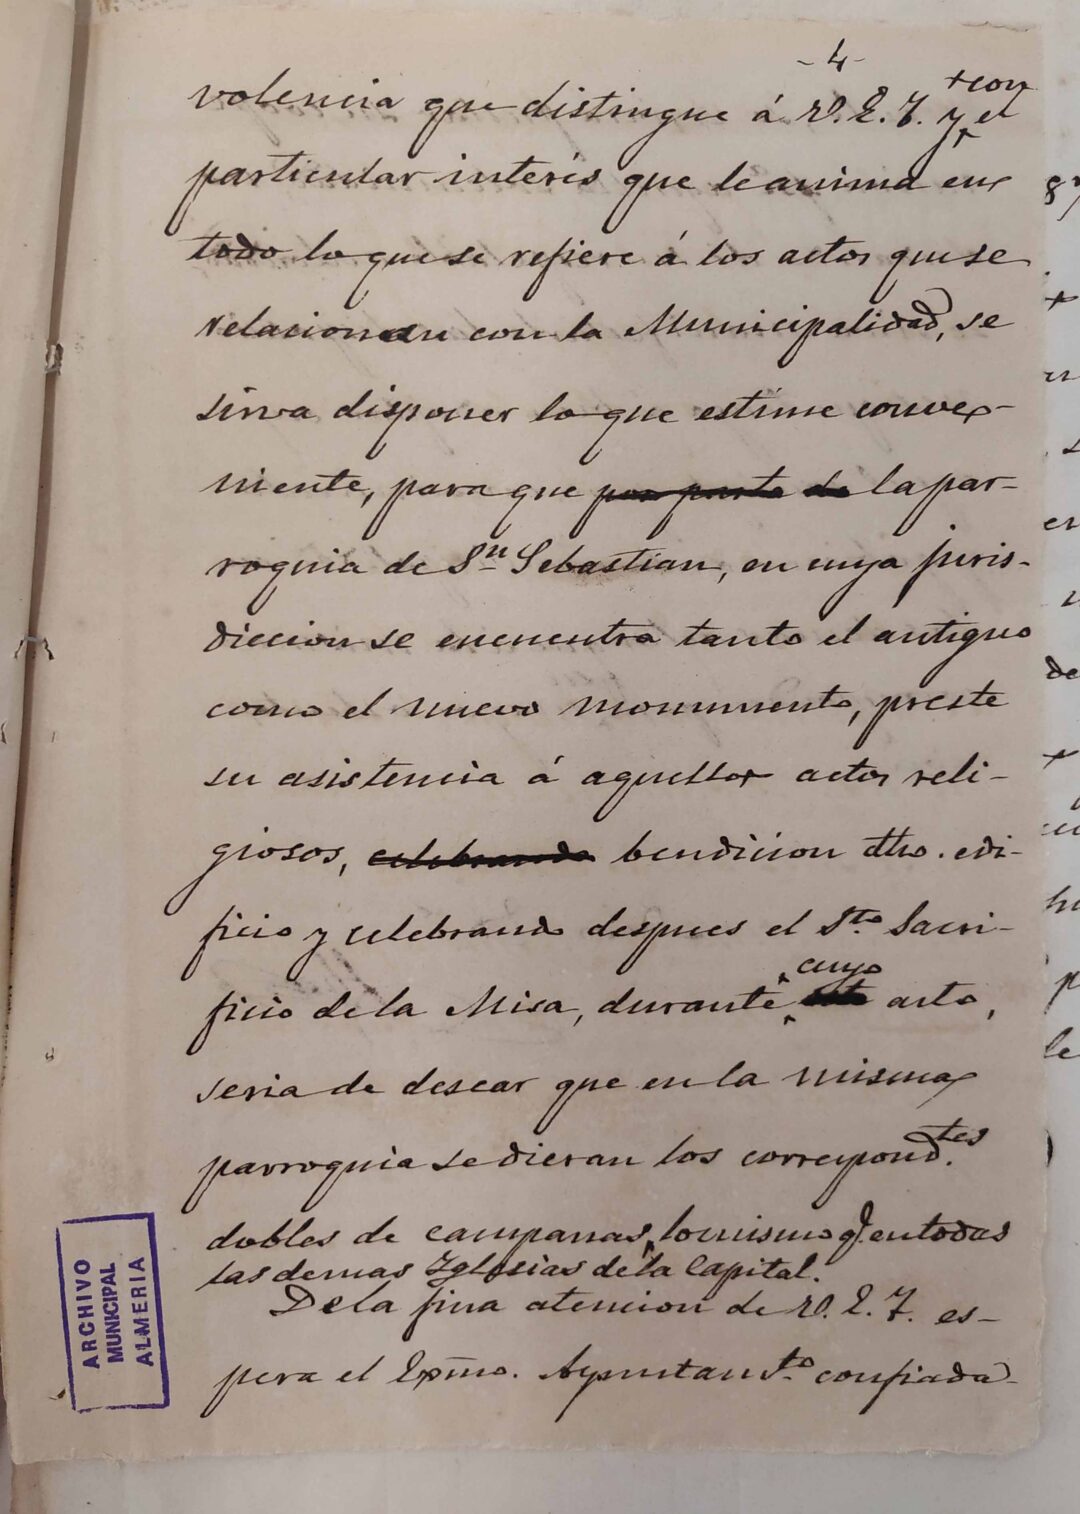 -4-
+con
volencia que distingue á V. E. Y. y el
particular interés que le anima en
todo lo que se refiere á los actos que se
relacionan con la Municipalidad, se
sirva disponer lo que estime conve-
niente, para que por parte de la par-
roquia de Sn Sebastian, en cuya juris-
diccion se encuentra tanto el antiguo
como el nuevo monumento, preste
su asistencia á aquellos actos reli-
giosos, celebrando bendicion dho. edi-
ficio y celebrando despues el Sto. Sacri-
cuyo
ficio de la Misa, durante acto,
seria de desear que en la misma
parroquia se dieran los correspond.tes
dobles de campanas, lo mismo q. en todas
las demas Yglesias de la Capital.
De la fina atencion de V. E. Y. es-
pera el Exmo. Ayuntamto. confiada-
ARCHIVO
MUNICIPAL
ALMERIA